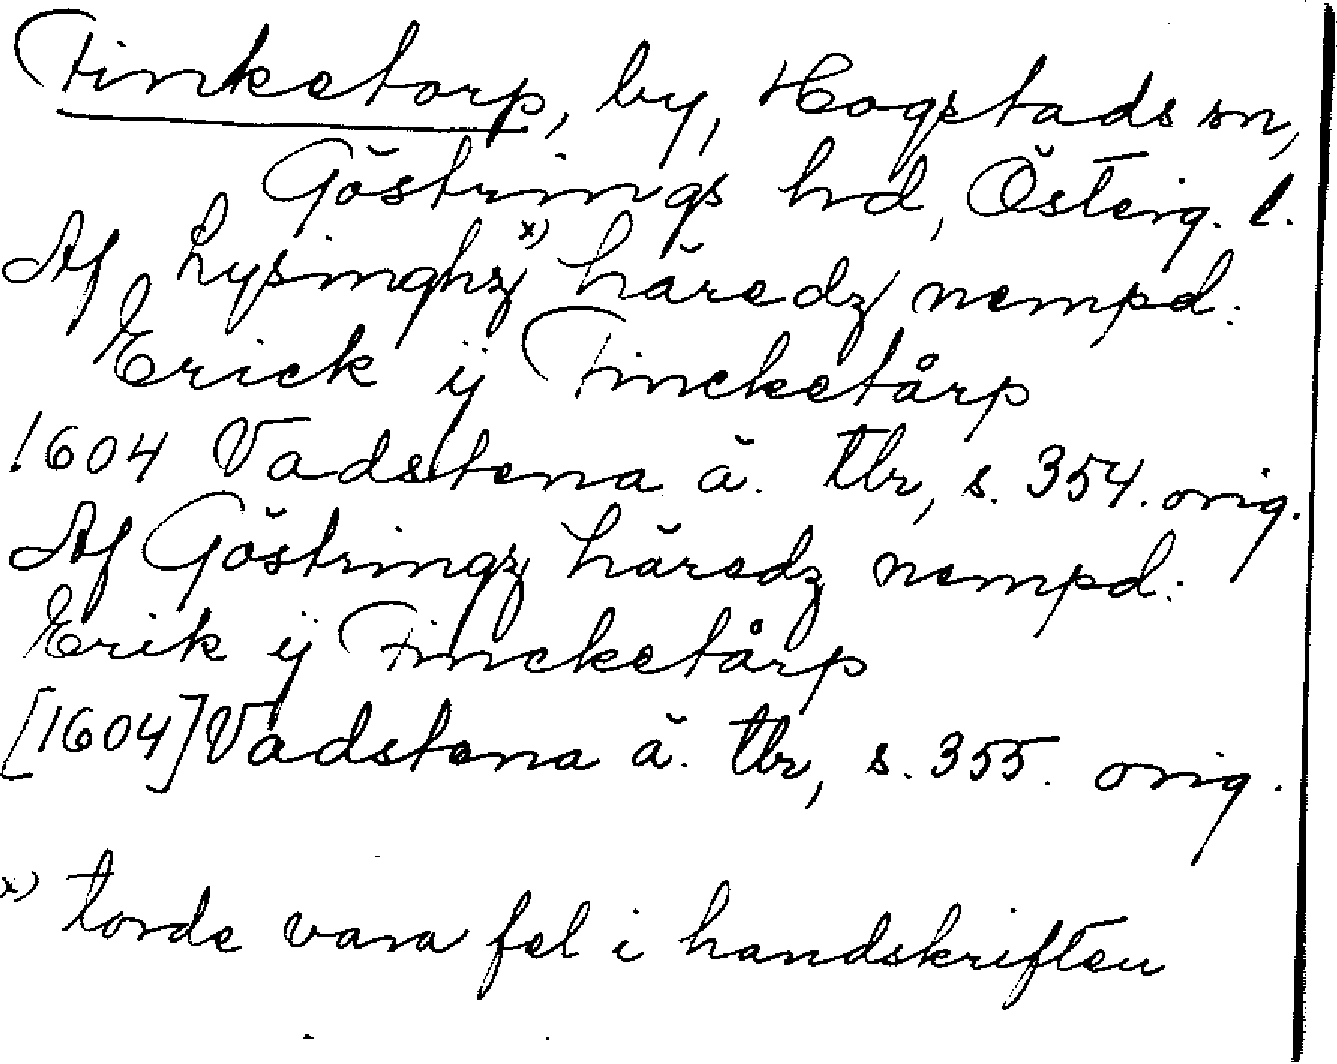 Finketorp, by, Hogstads sn,
Göstrings hd, Österg. l.
Af Lysinghz x) häredz nempd:
Erick ij Fincketårp
1604 Vadstena ä. tbr, s. 354. orig.
Af Göstringz häredz nempd:
Erik ij Fincketårp
[1604] Vadstena ä. tbr, s. 355. orig.
x) torde vara fel i handskriften